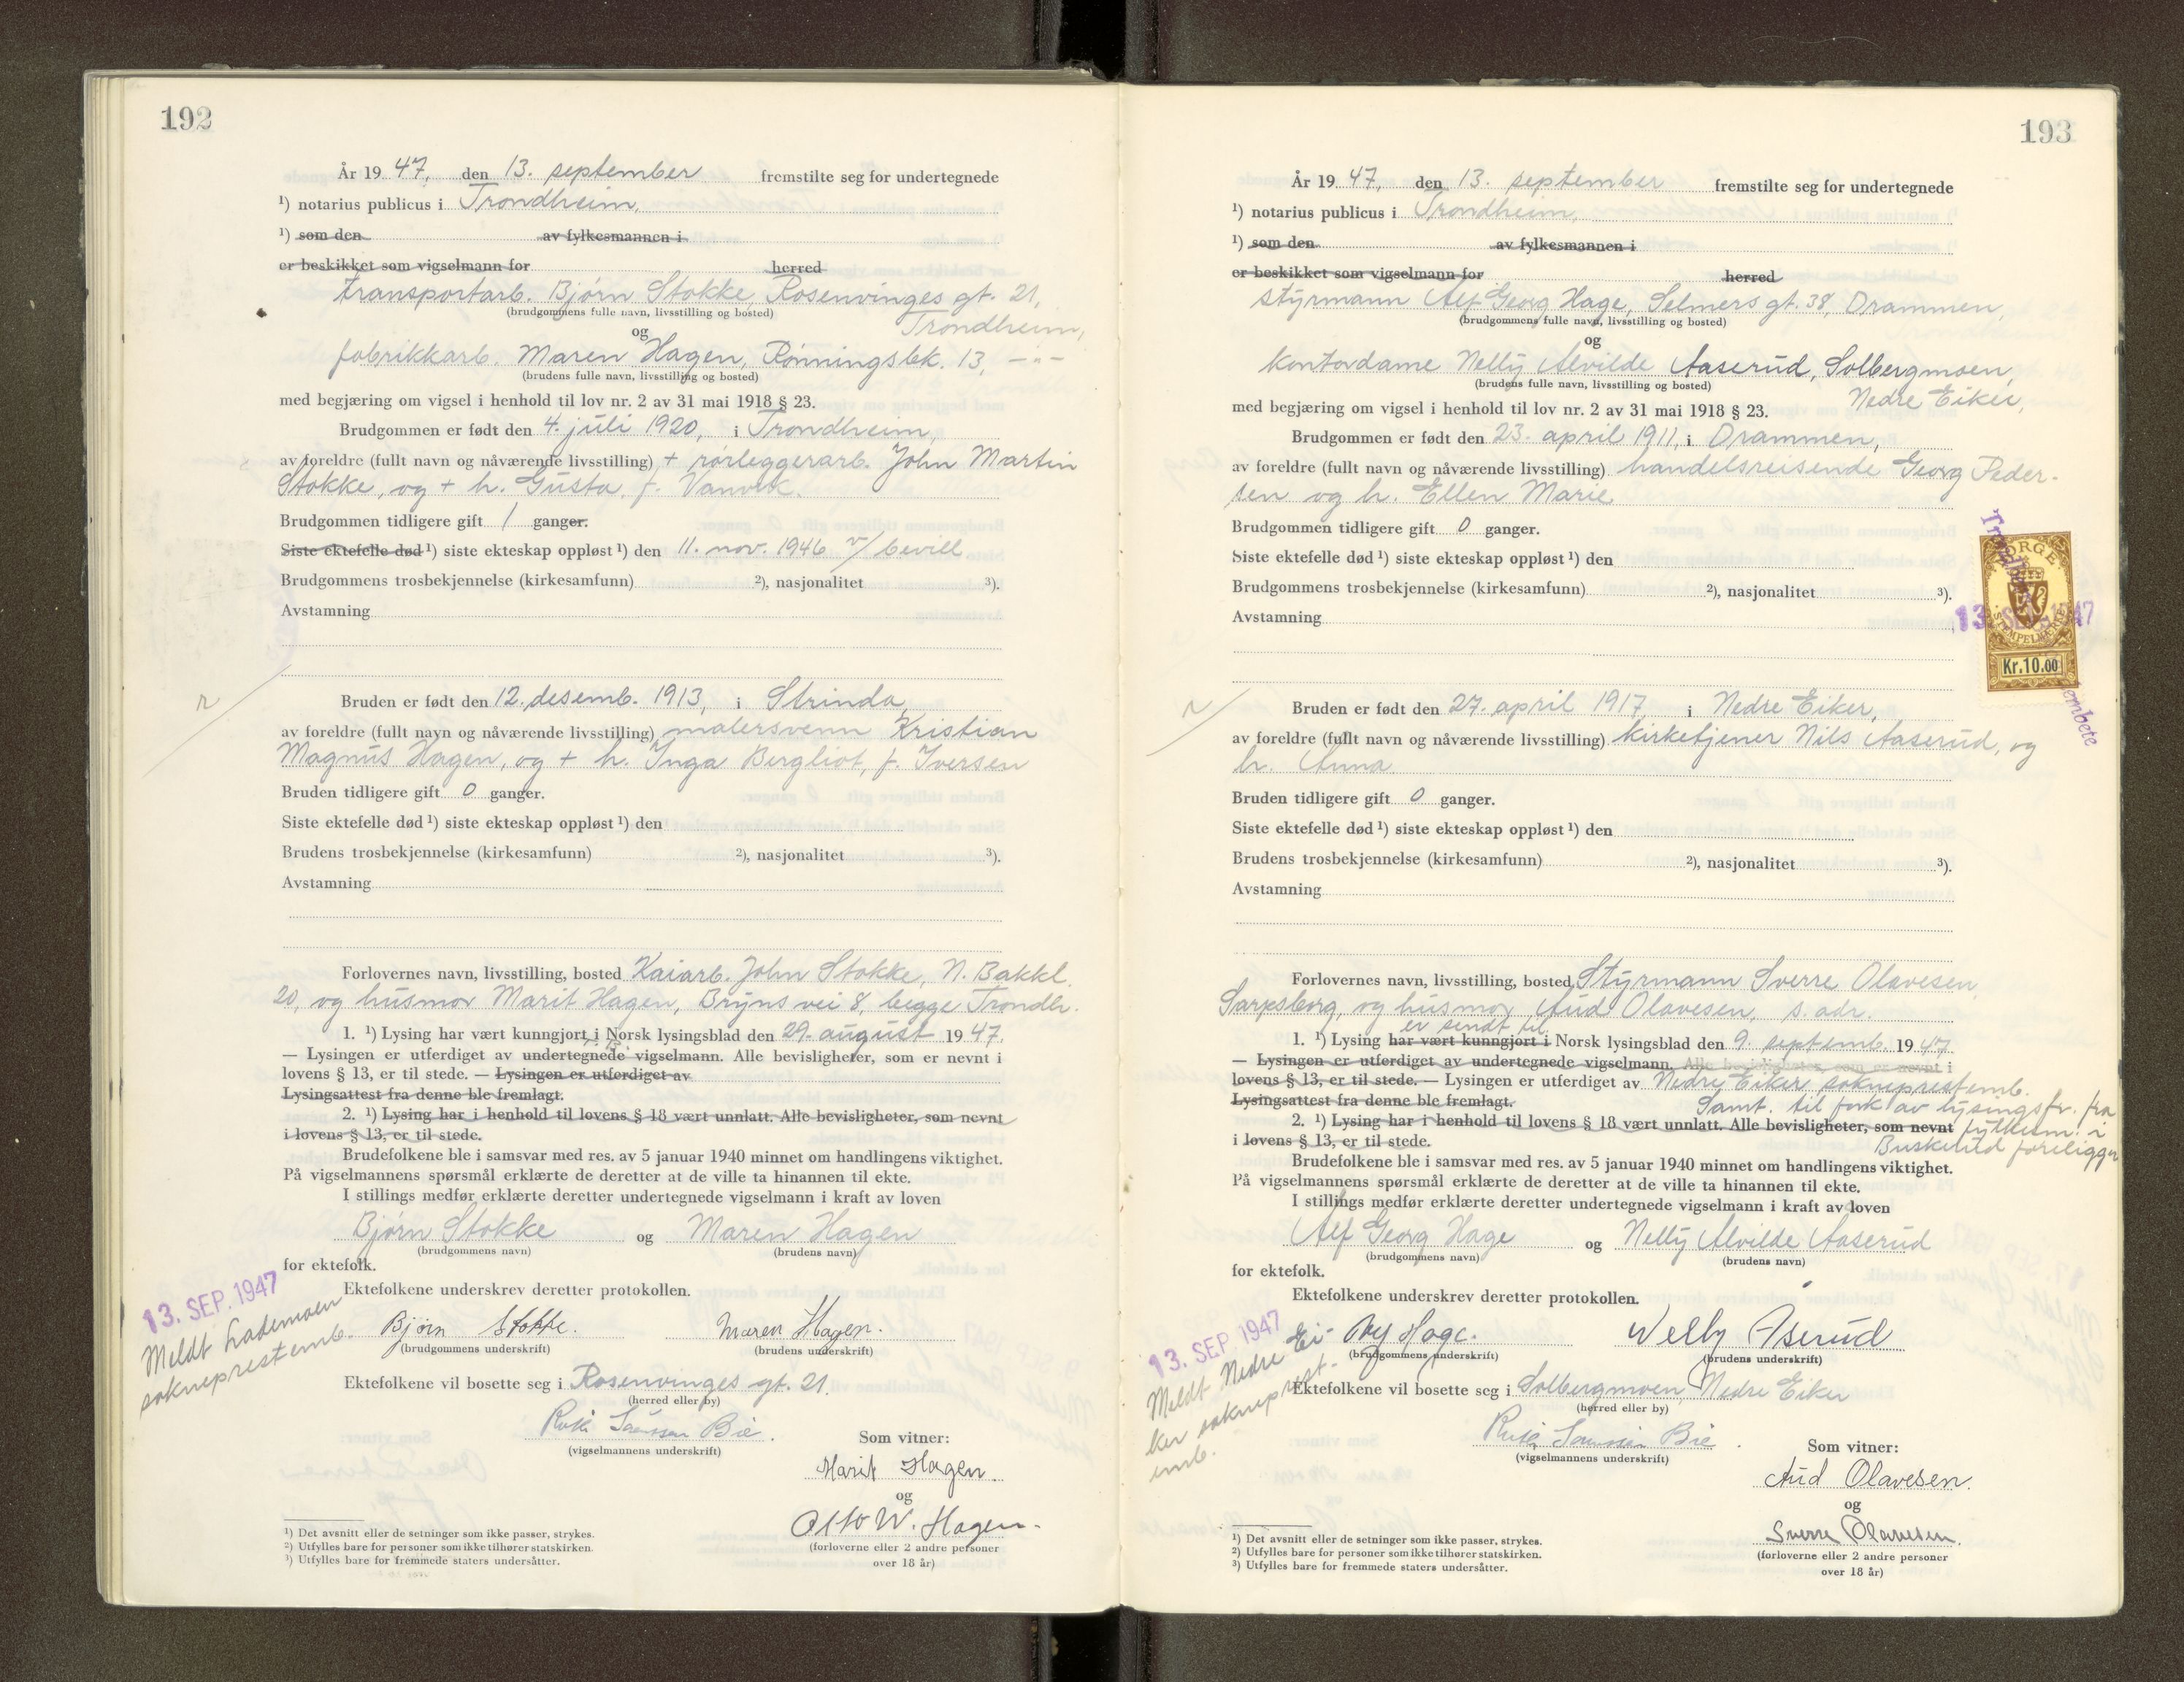 192
År 19 47, den 13. september fremstilte seg for undertegnede
¹) notarius publicus i Trondheim,
¹) som den av fylkesmannen i
er beskikket som vigselmann for herred
transportarb. Bjørn Stokke, Rosenvinges gt. 21,
(brudgommens fulle navn, livsstilling og bosted)
Trondheim,
og
fabrikkarb. Maren Hagen, Rønningsbk. 13, —"—
(brudens fulle navn, livsstilling og bosted)
med begjæring om vigsel i henhold til lov nr. 2 av 31 mai 1918 § 23.
Brudgommen er født den 4. juli 1920, i Trondheim,
av foreldre (fullt navn og nåværende livsstilling) + rørleggerarb. John Martin
Stokke, og + h. Gusta, f. Vanvik.
Brudgommen tidligere gift 1 ganger.
Siste ektefelle død ¹) siste ekteskap oppløst ¹) den 11. nov. 1946 v/ bevill
Brudgommens trosbekjennelse (kirkesamfunn) ²), nasjonalitet ³).
Avstamning
Bruden er født den 12. desemb. 1913, i Strinda,
av foreldre (fullt navn og nåværende livsstilling) malersvenn Kristian
Magnus Hagen, og + h. Inga Bergliot, f. Iversen
Bruden tidligere gift 0 ganger.
Siste ektefelle død ¹) siste ekteskap oppløst ¹) den
Brudens trosbekjennelse (kirkesamfunn) ²), nasjonalitet ³).
Avstamning
Forlovernes navn, livsstilling, bosted Kaiarb. John Stokke, N. Bakkl.
20, og husmor Marit Hagen, Bryns vei 8, begge Trondh.
1. ¹) Lysing har vært kunngjort i Norsk lysingsblad den 29. august 19 47.
— Lysingen er utferdiget av undertegnede vigselmann. Alle bevisligheter, som er nevnt i
lovens § 13, er til stede. — Lysingen er utferdiget av
Lysingsattest fra denne ble fremlagt.
2. ¹) Lysing har i henhold til lovens § 18 vært unnlatt. Alle bevisligheter, som nevnt
i lovens § 13, er til stede.
Brudefolkene ble i samsvar med res. av 5 januar 1940 minnet om handlingens viktighet.
På vigselmannens spørsmål erklærte de deretter at de ville ta hinannen til ekte.
I stillings medfør erklærte deretter undertegnede vigselmann i kraft av loven
Bjørn Stokke og Maren Hagen
(brudgommens navn) (brudens navn)
for ektefolk.
Ektefolkene underskrev deretter protokollen.
13. SEP. 1947
Meldt Lademoen
sokneprestemb.
Bjørn Stokke. Maren Hagen.
(brudgommens underskrift) (brudens underskrift)
Ektefolkene vil bosette seg i Rosenvinges gt. 21.
(herred eller by)
Bie.
(vigselmannens underskrift)
Som vitner:
Marit Hagen.
og
Otto W. Hagen.
(forloverne eller 2 andre personer
over 18 år)
¹) Det avsnitt eller de setninger som ikke passer, strykes.
²) Utfylles bare for personer som ikke tilhører statskirken.
³) Utfylles bare for fremmede staters undersåtter.
193
År 19 47, den 13. september fremstilte seg for undertegnede
¹) notarius publicus i Trondheim,
¹) som den av fylkesmannen i
er beskikket som vigselmann for herred
styrmann Alf Georg Hage, Selmers gt. 38, Drammen,
(brudgommens fulle navn, livsstilling og bosted)
og
kontordame Nelly Alvilde Aaserud, Solbergmoen,
(brudens fulle navn, livsstilling og bosted)
Nedre Eiker,
med begjæring om vigsel i henhold til lov nr. 2 av 31 mai 1918 § 23.
Brudgommen er født den 23. april 1911, i Drammen,
av foreldre (fullt navn og nåværende livsstilling) handelsreisende Georg Peder-
sen og h. Ellen Marie
Brudgommen tidligere gift 0 ganger.
Siste ektefelle død ¹) siste ekteskap oppløst ¹) den
Brudgommens trosbekjennelse (kirkesamfunn) ²), nasjonalitet ³).
Avstamning
NORGE
STEMPELMERKE
Kr. 10.00
13. SEP. 1947
Bruden er født den 27. april 1917 i Nedre Eiker,
av foreldre (fullt navn og nåværende livsstilling) kirketjener Nils Aaserud, og
h. Anna
Bruden tidligere gift 0 ganger.
Siste ektefelle død ¹) siste ekteskap oppløst ¹) den
Brudens trosbekjennelse (kirkesamfunn) ²), nasjonalitet ³).
Avstamning
Forlovernes navn, livsstilling, bosted Styrmann Sverre Olavesen,
Sarpsborg, og husmor Aud Olavesen, s. adr.
er sendt til
1. ¹) Lysing har vært kunngjort i Norsk lysingsblad den 9. septemb. 19 47
— Lysingen er utferdiget av undertegnede vigselmann. Alle bevisligheter, som er nevnt i
lovens § 13, er til stede. — Lysingen er utferdiget av Nedre Eiker sokneprestemb.
Lysingsattest fra denne ble fremlagt.
Samt. til fork av lysingsfr. fra
2. ¹) Lysing har i henhold til lovens § 18 vært unnlatt. Alle bevisligheter, som nevnt fylkesm. i
i lovens § 13, er til stede. Buskerud foreligger
Brudefolkene ble i samsvar med res. av 5 januar 1940 minnet om handlingens viktighet.
På vigselmannens spørsmål erklærte de deretter at de ville ta hinannen til ekte.
I stillings medfør erklærte deretter undertegnede vigselmann i kraft av loven
Alf Georg Hage og Nelly Alvilde Aaserud
(brudgommens navn) (brudens navn)
for ektefolk.
Ektefolkene underskrev deretter protokollen.
13. SEP. 1947
Meldt Nedre Ei-
ker sokneprest-
emb.
Hage. Nelly Åserud
(brudgommens underskrift) (brudens underskrift)
Ektefolkene vil bosette seg i Solbergmoen, Nedre Eiker
(herred eller by)
Bie.
(vigselmannens underskrift)
Som vitner:
Aud Olavesen.
og
Sverre Olavesen.
(forloverne eller 2 andre personer
over 18 år)
¹) Det avsnitt eller de setninger som ikke passer, strykes.
²) Utfylles bare for personer som ikke tilhører statskirken.
³) Utfylles bare for fremmede staters undersåtter.